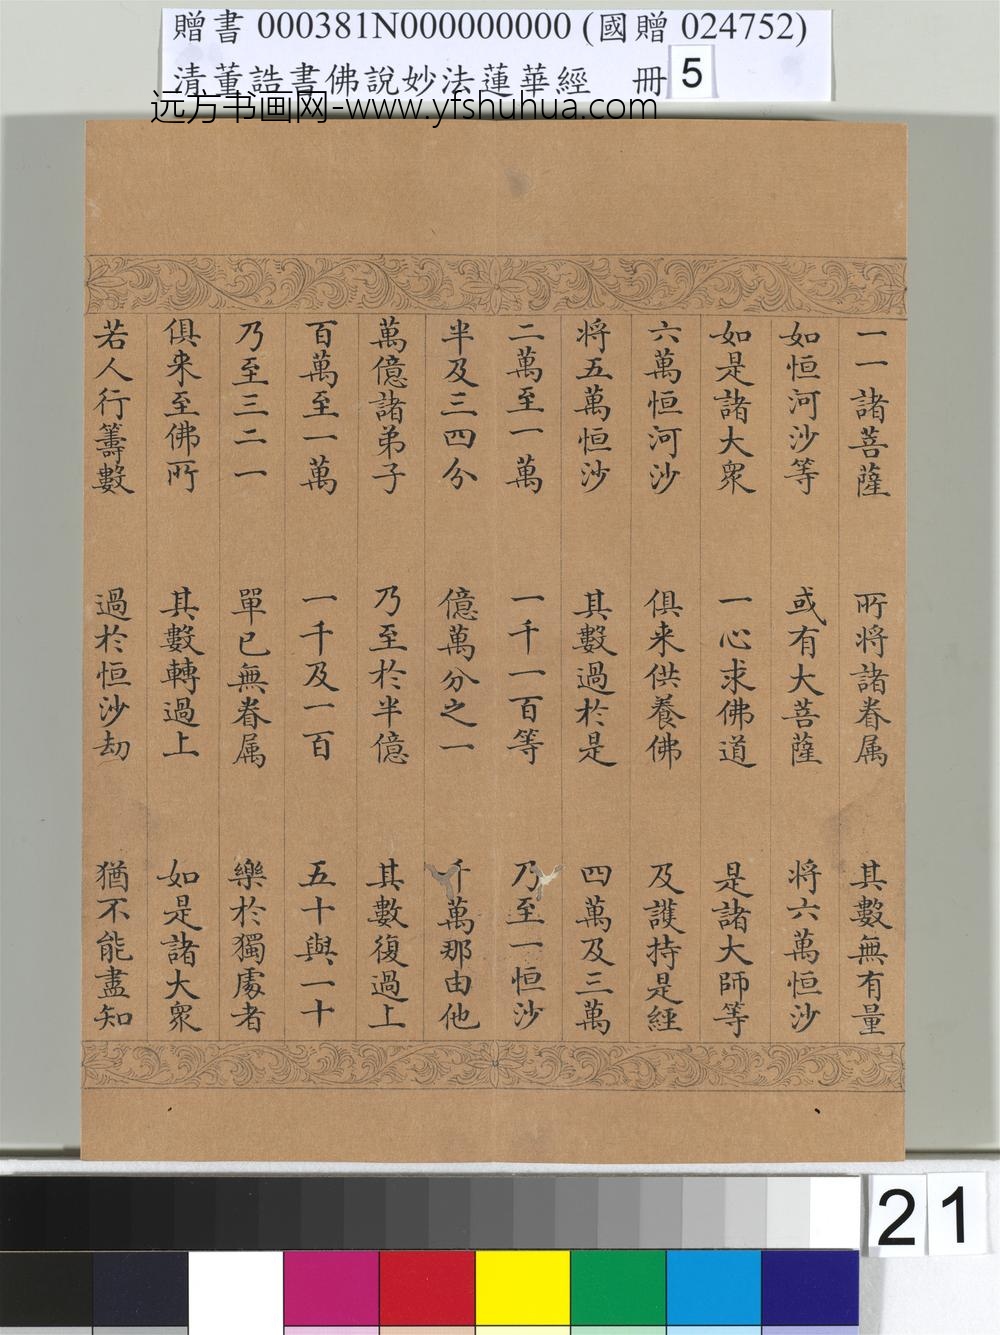 贈書 000381N000000000 (國贈 024752)
清董誥書佛說妙法蓮華經 冊 5
远方书画网-www.yfshuhua.com
一一諸菩薩 所將諸眷属 其數無有量
如恒河沙等 或有大菩薩 將六萬恒沙
如是諸大眾 一心求佛道 是諸大師等
六萬恒河沙 俱來供養佛 及護持是經
將五萬恒沙 其數過於是 四萬及三萬
二萬至一萬 一千一百等 乃至一恒沙
半及三四分 億萬分之一 千萬那由他
萬億諸弟子 乃至於半億 其數復過上
百萬至一萬 一千及一百 五十與一十
乃至三二一 單已無眷属 樂於獨處者
俱來至佛所 其數轉過上 如是諸大眾
若人行籌數 過於恒沙劫 猶不能盡知
21